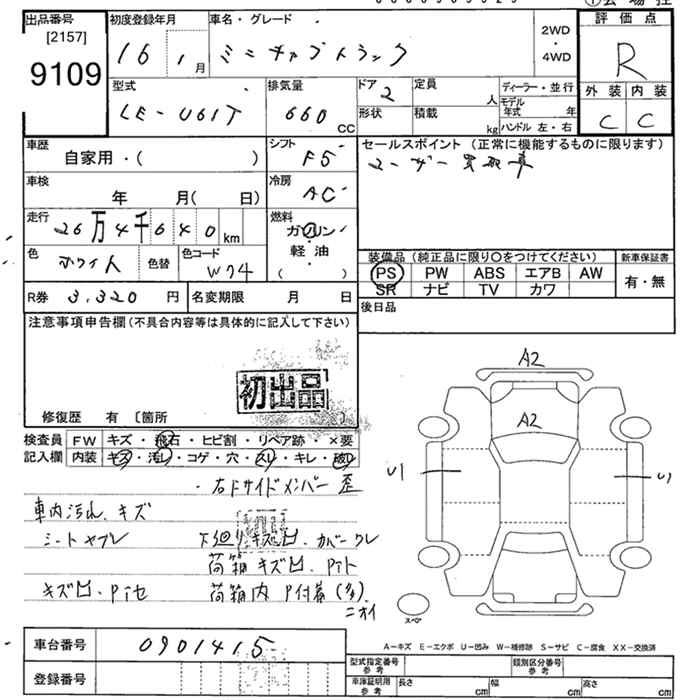 出品番号
[2157]
9109
初度登録年月
16 1月
車名・グレード
ミニキャブトラック
2WD
・
4WD
評価点
R
外装 内装
C C
型式
LE-U61T
排気量
660
CC
ドア
2
形状
定員
人
積載
kg
ディーラー・並行
モデル年式 年
ハンドル 左・右
車歴
自家用・( )
シフト
F5
セールスポイント (正常に機能するものに限ります)
ユーザー買取車
車検
年 月( 日)
冷房
AC
走行
26万4千640km
燃料
ガソリン
・
軽油
( )
色
ホワイト
色替
色コード
W74
装備品 (純正品に限り〇をつけてください)
PS PW ABS エアB AW
SR ナビ TV カワ
新車保証書
有・無
R券 3,320円
名変期限 月 日
後日品
注意事項申告欄 (不具合内容等は具体的に記入して下さい)
初出品
修復歴 有 〔箇所 〕
検査員記入欄
FW キズ・飛石・ヒビ割・リペア跡・×要
内装 キズ・汚レ・コゲ・穴・スレ・キレ・破レ
・右下サイドメンバー歪
車内汚れ、キズ
シートヤブレ
下廻りキズ凹、カバークレ
荷箱キズ凹、Pイト
キズ凹、Pイセ
荷箱内 P付着(多)
ニオイ
A2
A2
U1
U1
スペア
A－キズ E－エクボ U－凹み W－補修跡 S－サビ C－腐食 XX－交換済
車台番号
0901415
登録番号
型式指定番号
参考
類別区分番号
参考
車庫証明用
参考
長さ cm
幅 cm
高さ cm